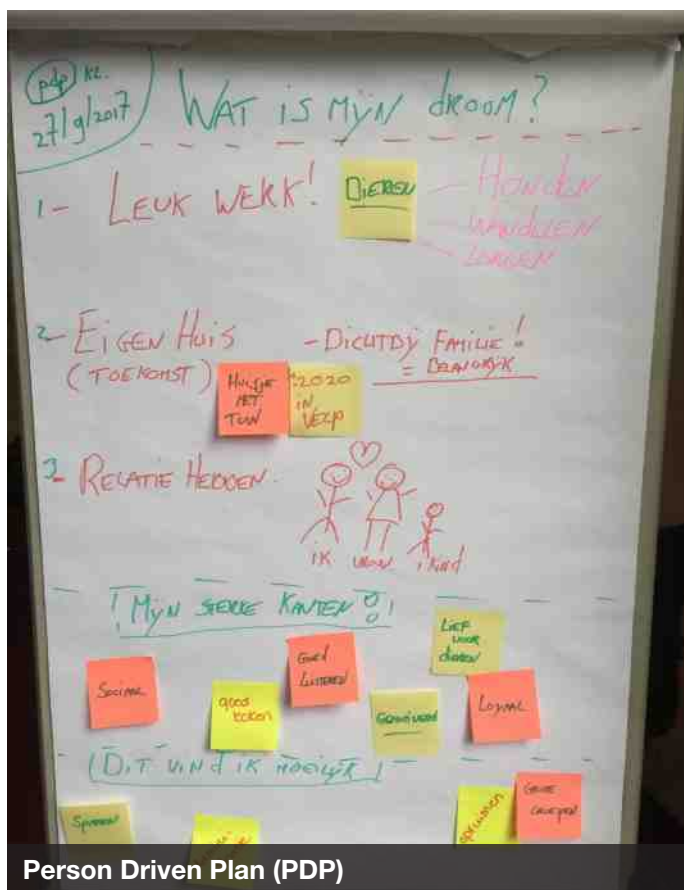 pdp KL.
27/9/2017
WAT IS MIJN DROOM?
1- LEUK WERK!
DIEREN
HONDEN
WANDELEN
2- EIGEN HUIS
(TOEKOMST)
- DICHTBIJ FAMILIE!
= BELANGRIJK
HUISJE
MET
TUIN
2020
IN
VELP
3- RELATIE HEBBEN
ik vrouw 1 kind
! MIJN STERKE KANTEN !
SOCIAAL
goed
koken
GOED
LUISTEREN
LIEF
VOOR
dieren
LOYAAL
(DIT VIND IK MOEILIJK)
SPINNEN
GROTE
GROEPEN
Person Driven Plan (PDP)